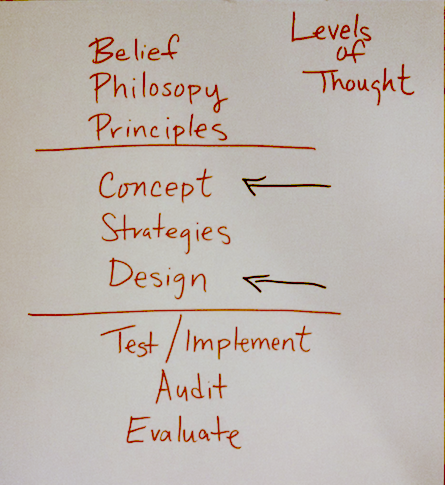 Levels
of
Thought
Belief
Philosopy
Principles
Concept
Strategies
Design
Test/Implement
Audit
Evaluate